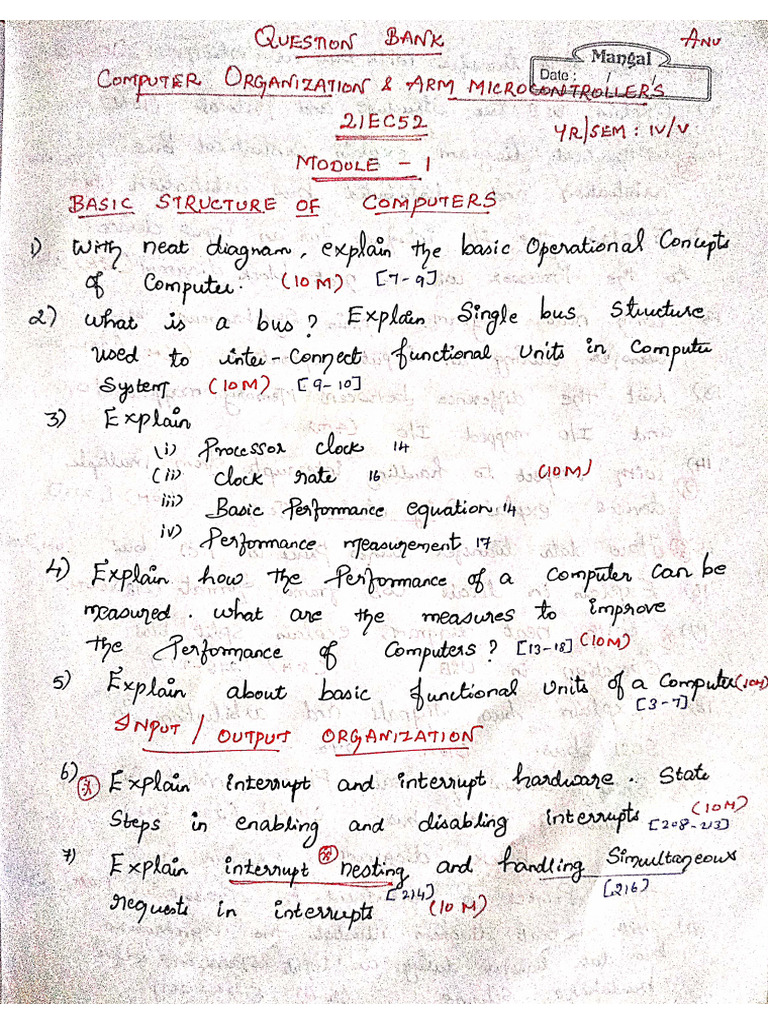 QUESTION BANK
ANU
Mangal
Date : / /
COMPUTER ORGANIZATION & ARM MICROCONTROLLER'S
21EC52
YR/SEM : IV/V
MODULE - 1
BASIC STRUCTURE OF COMPUTERS
1) With neat diagram, explain the basic Operational Concepts
of Computer. (10M) [7-9]
2) What is a bus? Explain Single bus Structure
used to inter-connect functional Units in Computer
System (10M) [9-10]
3) Explain
(i) Processor clock 14
(ii) clock rate 16 (10M)
iii) Basic Performance equation 14
iv) Performance measurement 17
4) Explain how the Performance of a Computer can be
measured. what are the measures to improve
the Performance of Computers? [13-18] (10M)
5) Explain about basic functional Units of a Computer (10M)
[3-7]
INPUT / OUTPUT ORGANIZATION
6) Explain interrupt and interrupt hardware. State
Steps in enabling and disabling interrupts (10M)
[208-213]
7) Explain interrupt nesting and handling Simultaneous
requests in interrupts [214] (10M) [216]